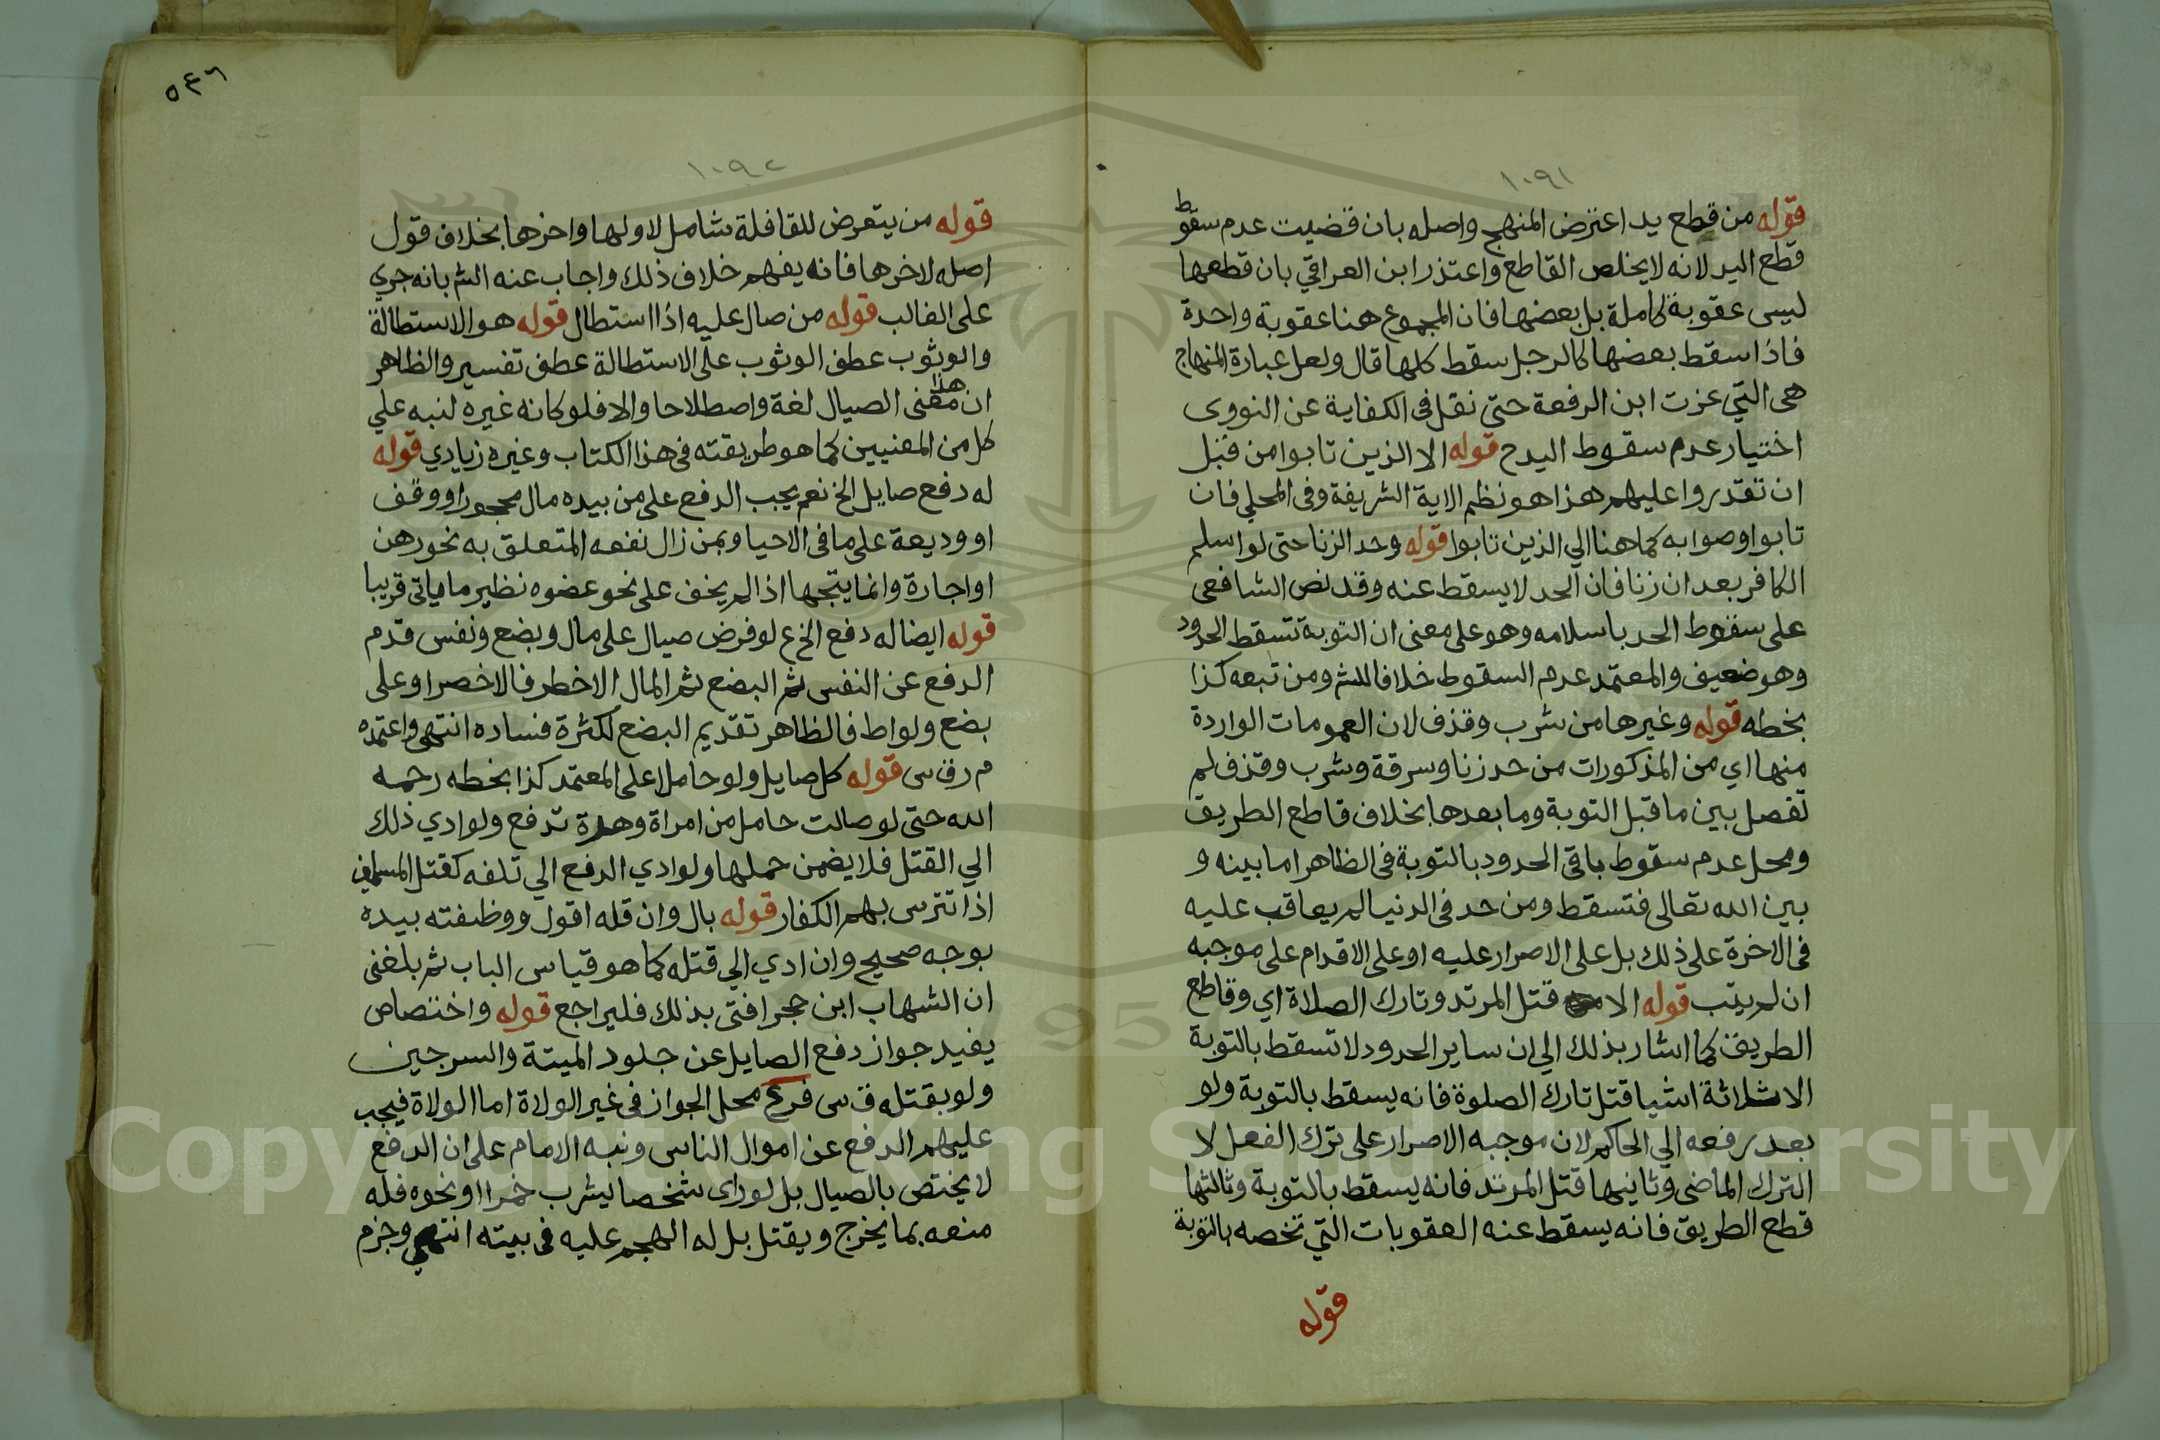 ١٠٩١
قوله من قطع يد اعترض المنهج واصله بان قضيت عدم سقوط
قطع اليد لانه لا يخلص القاطع واعتذر ابن العراقي بان قطعها
ليس عقوبة كاملة بل بعضها فان المجموع هنا عقوبة واحدة
فاذا سقط بعضها كالرجل سقط كلها قال ولعل عبارة المنهاج
هي التي عزت ابن الرفعة حتى نقل في الكفاية عن النووى
اختيار عدم سقوط اليد ح قوله الا الذين تابوا من قبل
ان تقدروا عليهم هذا هو نظم الاية الشريفة وفي المحلي فان
تابوا وصوابه كما هنا الي الذين تابوا قوله وحد الزنا حتى لو اسلم
الكافر بعد ان زنا فان الحد لا يسقط عنه وقد نص الشافعي
على سقوط الحد باسلامه وهو على معنى ان التوبة تسقط الحدود
وهو ضعيف والمعتمد عدم السقوط خلافا للشم ومن تبعه كذا
بخطه قوله وغيرها من شرب وقذف لان العمومات الواردة
منها اي من المذكورات من حد زنا وسرقة وشرب وقذف لم
تفصل بين ما قبل التوبة وما بعدها بخلاف قاطع الطريق
ومحل عدم سقوط باقي الحدود بالتوبة في الظاهر اما بينه و
بين الله تعالى فتسقط ومن حد في الدنيا لم يعاقب عليه
في الاخرة على ذلك بل على الاصرار عليه او على الاقدام على موجبه
ان لم يتب قوله الا قتل المرتد وتارك الصلاة اي وقاطع
الطريق كما اشار بذلك الي ان ساير الحدود لا تسقط بالتوبة
الا ثلاثة اشيا قتل تارك الصلوة فانه يسقط بالتوبة ولو
بعد رفعه الي الحاكم لان موجبه الاصرار على ترك الفعل لا
الترك الماضى وثانيها قتل المرتد فانه يسقط بالتوبة وثالثها
قطع الطريق فانه يسقط عنه العقوبات التي تخصه بالتوبة
قوله
٥٤٦
١٠٩٢
قوله من يتعرض للقافلة شامل لاولها واخرها بخلاف قول
اصله لاخرها فانه يفهم خلاف ذلك واجاب عنه الشم بانه جري
على الغالب قوله من صال عليه اذا استطال قوله هو الاستطالة
والوثوب عطف الوثوب على الاستطالة عطف تفسير والظاهر
ان هذا معنى الصيال لغة واصطلاحا والا فلو كانه غيره لنبه علي
كل من المعنيين كما هو طريقته في هذا الكتاب وغيره زيادي قوله
له دفع صايل الخ نعم يجب الدفع على من بيده مال محجور او وقف
او وديعة على ما في الاحيا وبمن زال نفعه المتعلق به نحو رهن
او اجارة وانما يتجها اذا لم يخف على نحو عضوه نظير ما ياتي قريبا
قوله ايضا له دفع الخ ع لو فرض صيال على مال وبضع ونفس قدم
الدفع عن النفس ثم البضع ثم المال الاخطر فالاخصر او على
بضع ولواط فالظاهر تقديم البضع لكثرة فساده انتهى واعتمده
م ر ق س قوله كل صايل ولو حاملا على المعتمد كذا بخطه رحمه
الله حتى لو صالت حامل من امراة وهرة تدفع ولو ادي ذلك
الي القتل فلا يضمن حملها ولو ادي الدفع الي تلفه كقتل المسلمين
اذا تترس بهم الكفار قوله بال وان قله اقول ووظيفته بيده
بوجه صحيح وان ادي الي قتله كما هو قياس الباب ثم بلغنى
ان الشهاب ابن حجر افتى بذلك فليراجع قوله واختصاص
يفيد جواز دفع الصايل عن جلود الميتة والسرجين
ولو بقتله ق س فرع محل الجواز في غير الولاة اما الولاة فيجب
عليهم الدفع عن اموال الناس ونبه الامام على ان الدفع
لا يختص بالصيال بل لو راى شخصا يشرب خمرا او نحوه فله
منعه بما يخرج ويقتل بل له الهجم عليه في بيته انتهى وجزم
Copyright © King Saud University